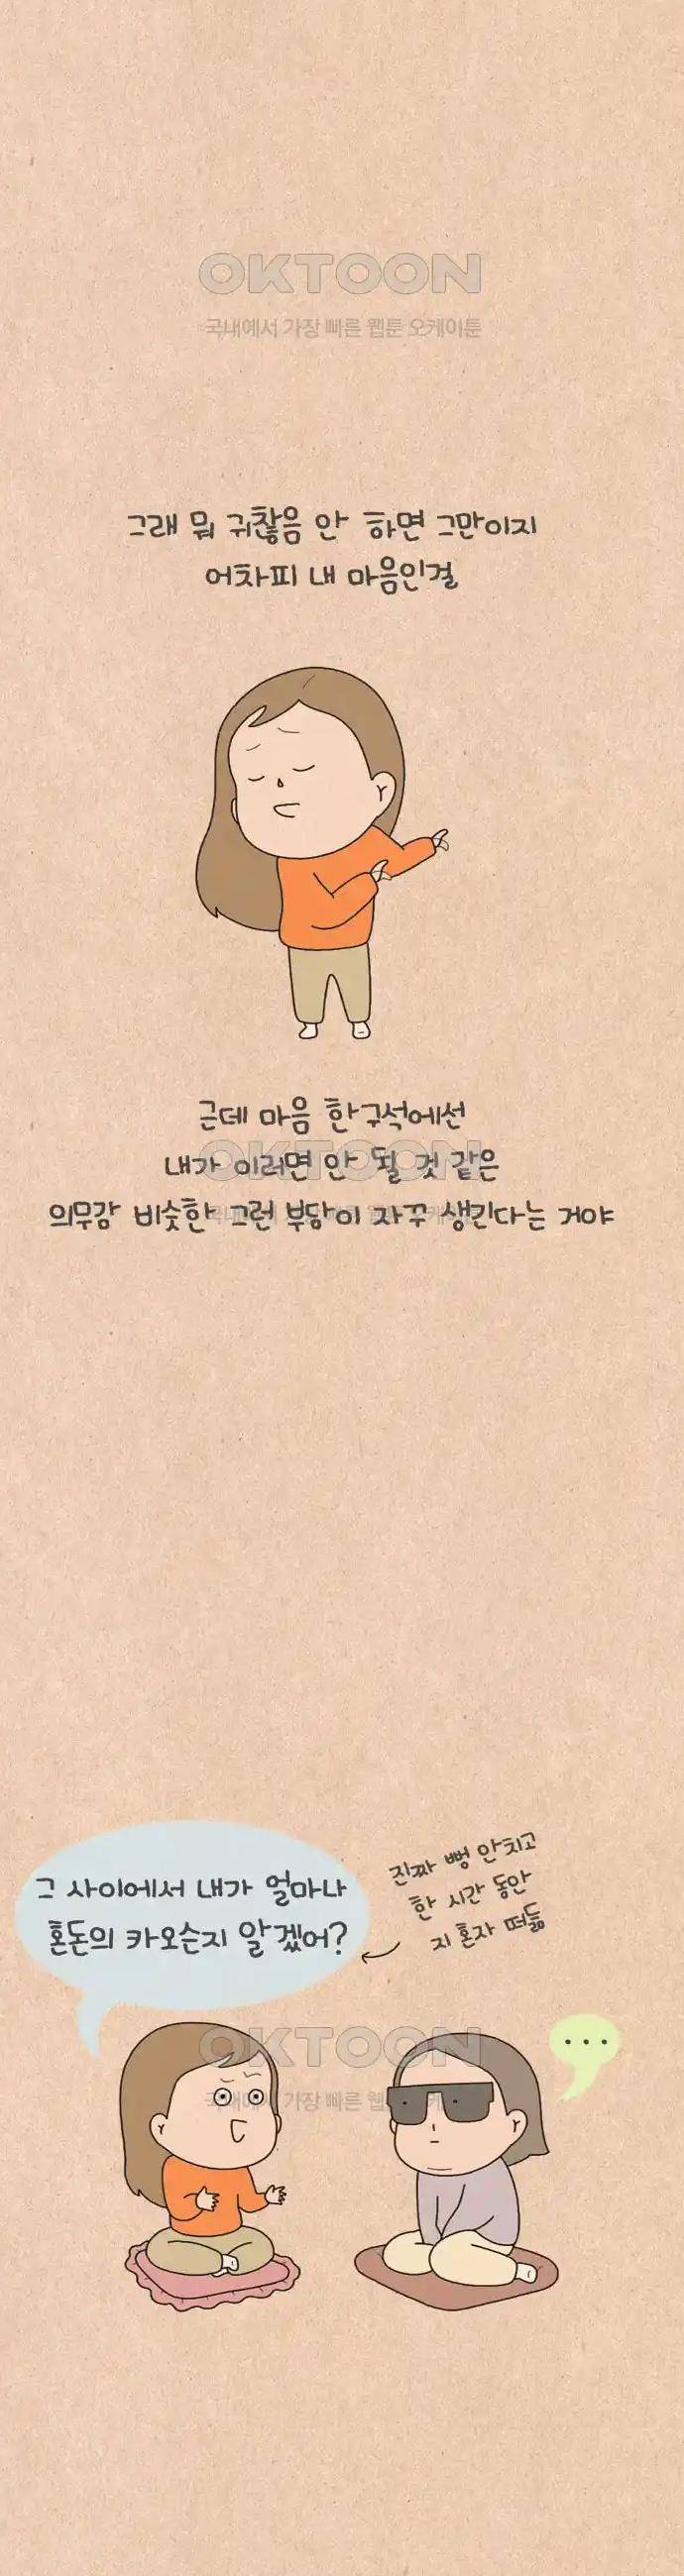 OKTOON
국내에서 가장 빠른 웹툰 오케이툰
그래 뭐 귀찮음 안 하면 그만이지
어차피 내 마음인걸
근데 마음 한구석에선
내가 이러면 안 될 것 같은
의무감 비슷한 그런 부담이 자꾸 생긴다는 거야
OKTOON
그 사이에서 내가 얼마나
혼돈의 카오슨지 알겠어?
진짜 뻥 안치고
한 시간 동안
지 혼자 떠듦
...
OKTOON
국내에서 가장 빠른 웹툰